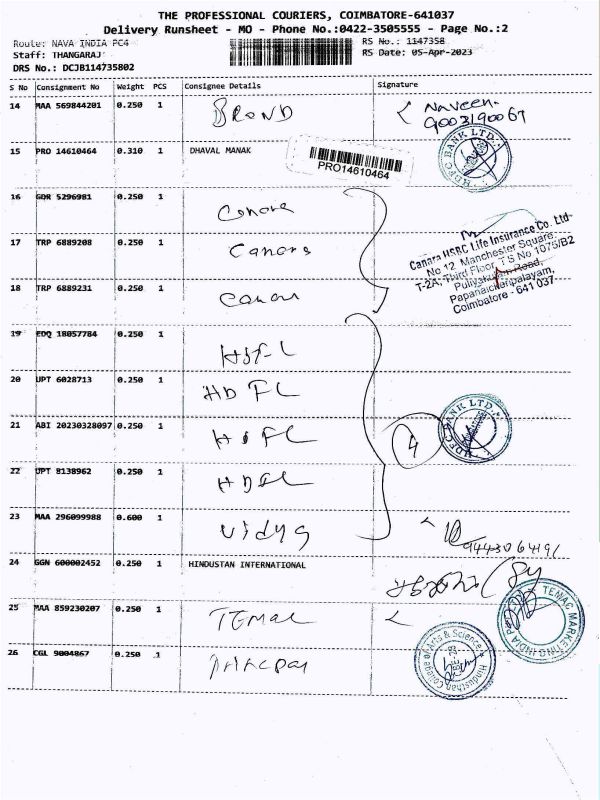 THE PROFESSIONAL COURIERS, COIMBATORE-641037
Delivery Runsheet - MO - Phone No.:0422-3505555 - Page No.:2
Route: NAVA INDIA PC4 RS No.: 1147358
Staff: THANGARAJ RS Date: 05-Apr-2023
DRS No.: DCJB114735802
S No Consignment No Weight PCS Consignee Details Signature
14 MAA 569844201 0.250 1 BROND Naveen
9003190067
15 PRO 14610464 0.310 1 DHAVAL MANAK
PRO14610464
HDFC BANK LTD.
16 GDR 5296981 0.250 1 Canara
17 TRP 6889208 0.250 1 Canara
18 TRP 6889231 0.250 1 Canara
Canara HSBC Life Insurance Co. Ltd-
No 12, Manchester Square,
T-2A, Third Floor, T S No 1075/B2
Puliyakulam Road,
Papanaickenpalayam,
Coimbatore - 641 037
19 EDQ 18057784 0.250 1 HDFC
20 UPT 6028713 0.250 1 HDFC
21 ABI 20230328097 0.250 1 HDFC
4
HDFC BANK LTD.
22 UPT 8138962 0.250 1 HDFC
23 MAA 296099988 0.600 1 Vidya
9443064191
24 GGN 600002452 0.250 1 HINDUSTAN INTERNATIONAL
25 MAA 859230207 0.250 1 TEMAC
TEMAC MARKETING INDIA
26 CGL 9004867 0.250 1
Hindusthan College of Arts & Science